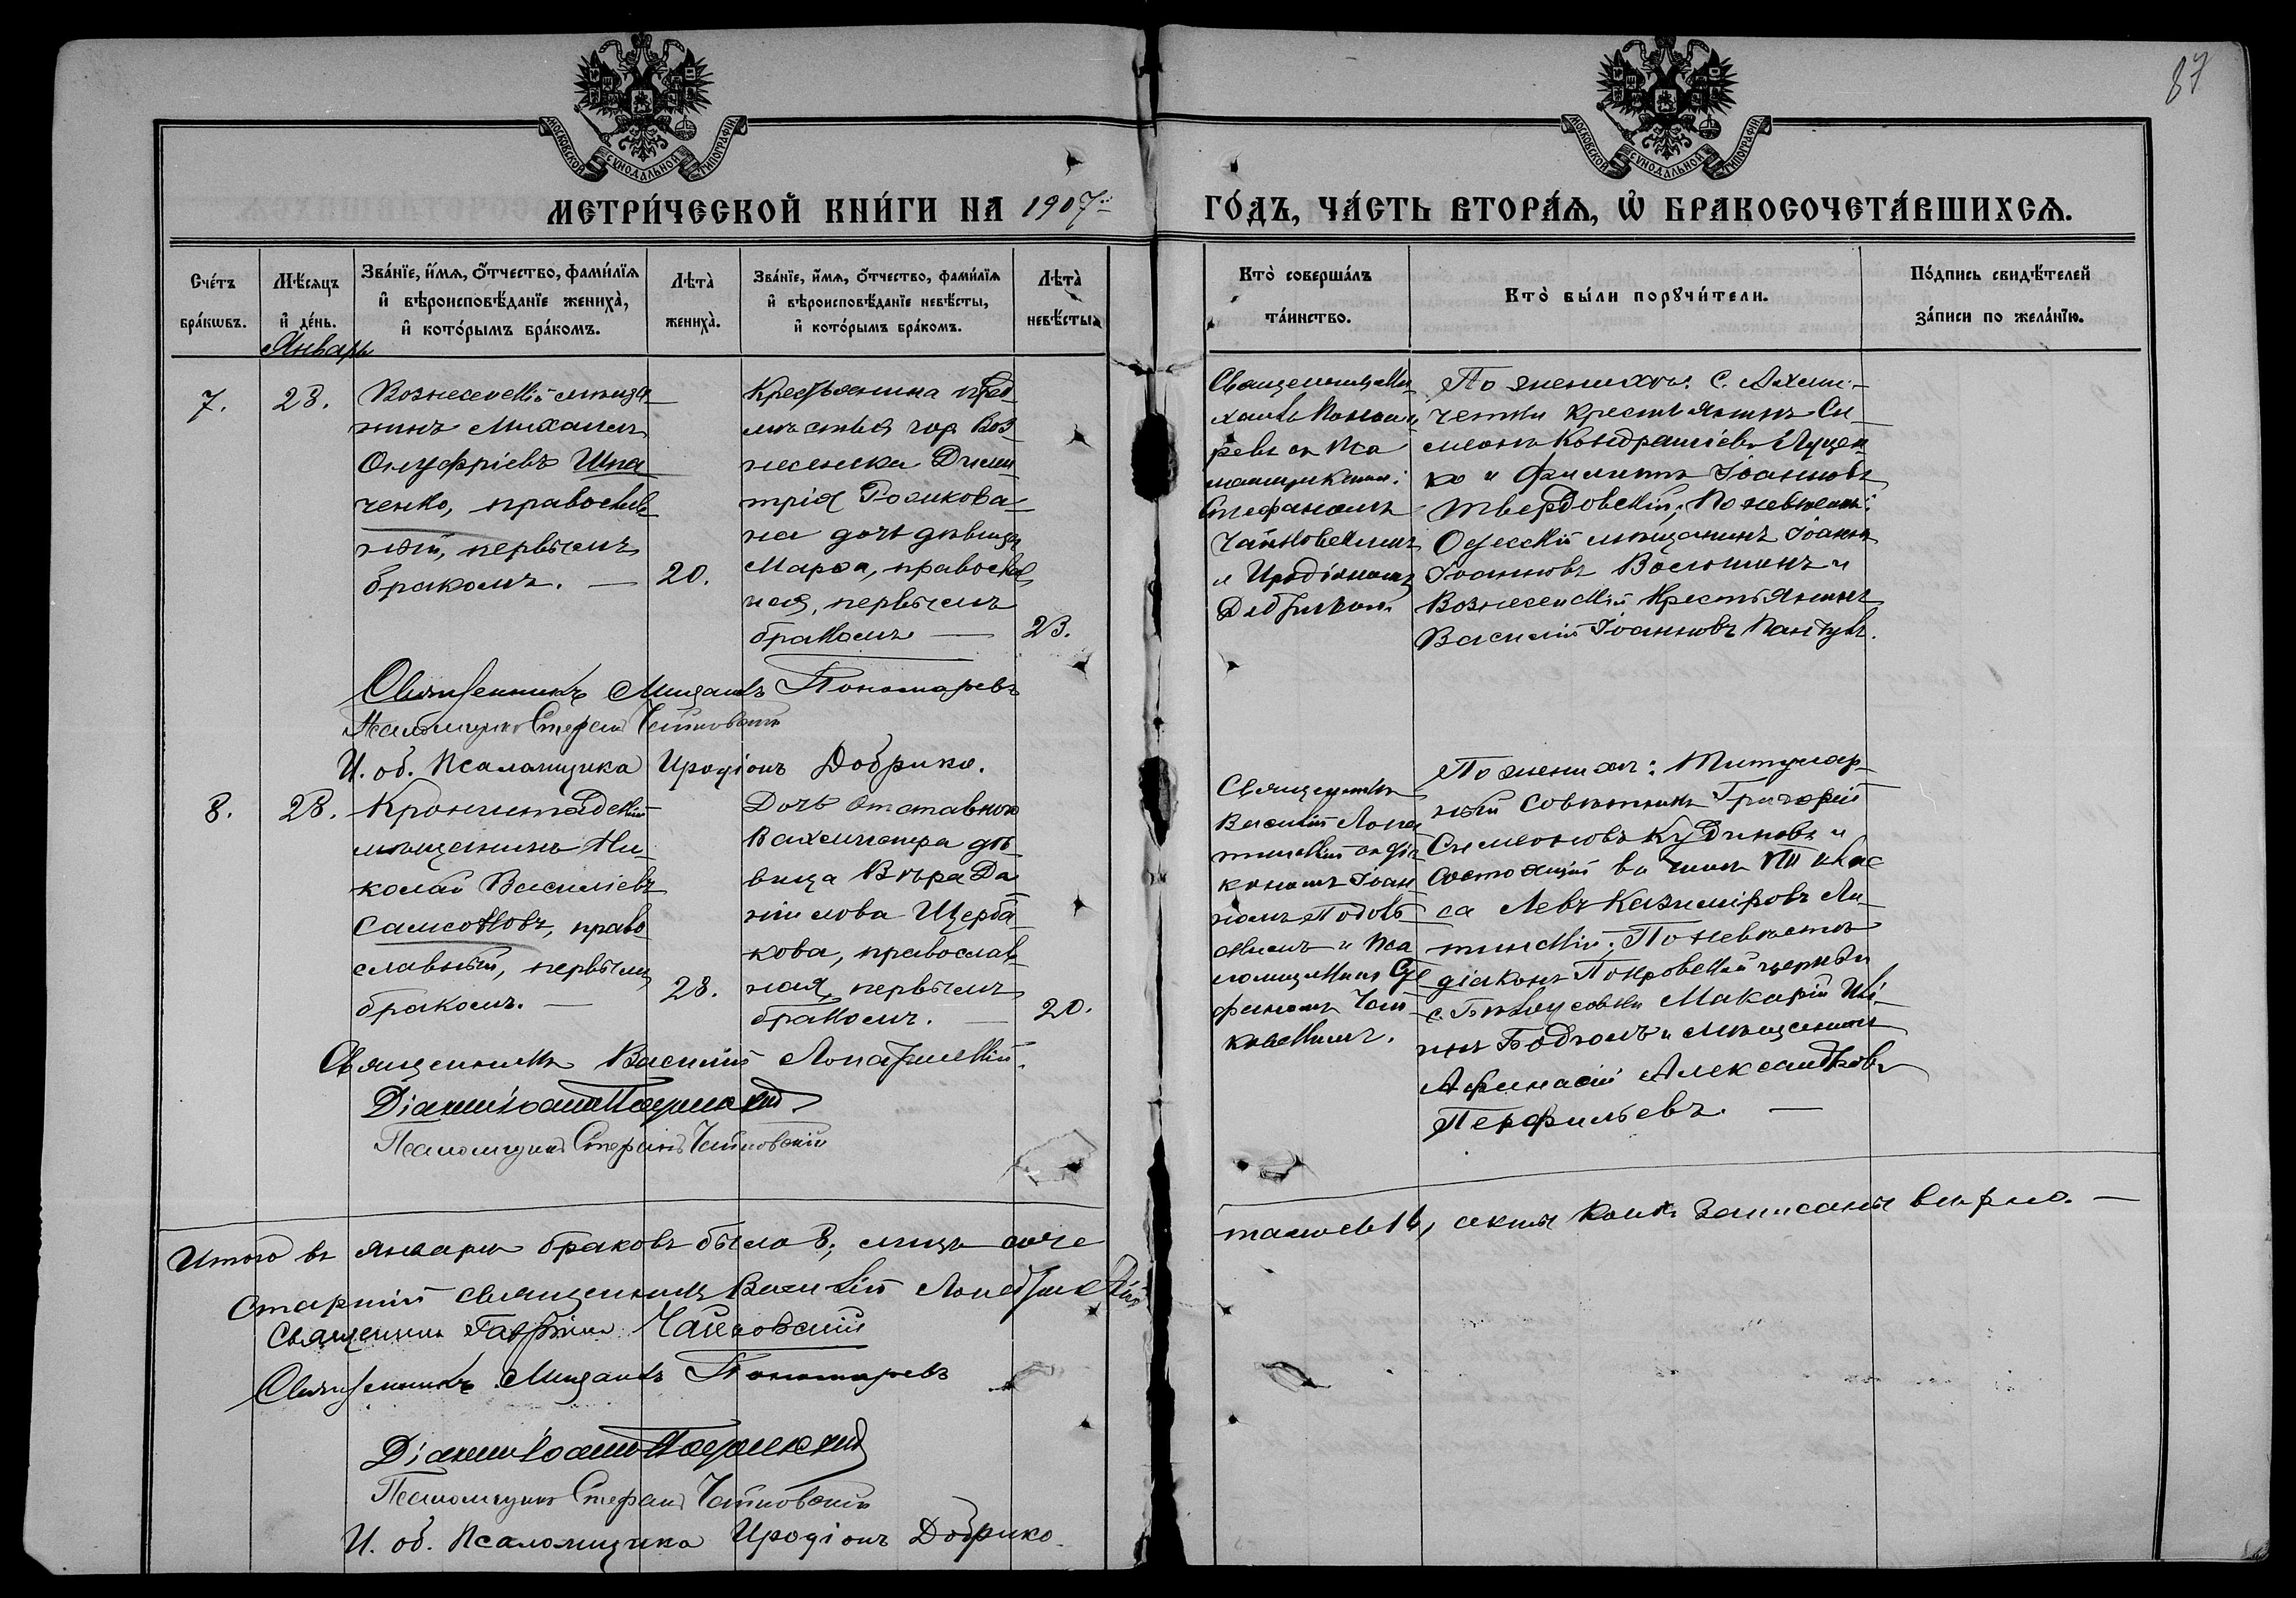 87
МОСКОВСКОЙ СѴНОДАЛЬНОЙ ТИПОГРАФІИ
МОСКОВСКОЙ СѴНОДАЛЬНОЙ ТИПОГРАФІИ
МЕТРИ́ЧЕСКОЙ КНИ́ГИ НА 1907 ГО́ДЪ, ЧА́СТЬ ВТОРА́Ѧ, Ѡ҆ БРАКОСОЧЕТА́ВШИХСѦ.
Сче́тъ
бра́кѡвъ.
Мѣ́сѧцъ
и҆ де́нь.
Зва́нїе, и҆́мѧ, ѻ҆́тчество, фами́лїѧ
и҆ вѣроисповѣ́данїе жениха̀,
и҆ кото́рымъ бра́комъ.
Лѣта̀
жениха̀.
Зва́нїе, и҆́мѧ, ѻ҆́тчество, фами́лїѧ
и҆ вѣроисповѣ́данїе невѣ́сты,
и҆ кото́рымъ бра́комъ.
Лѣта̀
невѣ́сты.
Кто̀ соверша́лъ
та́инство.
Кто̀ бы́ли порꙋчи́тели.
По́дпись свидѣ́телей
за́писи по жела́нїю.
Январь
7.
28.
Вознесенскій мѣща-
нинъ Михаилъ
Онуфріевъ Шпа
ченко, православ
ный, первымъ
бракомъ. —
20.
Крестьянина пред
мѣстья гор. Воз-
несенска Дими
трія Голикова-
на дочь дѣвица
Марѳа, православ
ная, первымъ
бракомъ —
23.
Священникъ Ми
хаилъ Понома
ревъ съ Пса
ломщиками:
Стефаномъ
Чайковскимъ
и Иродіономъ
Добрико.
По женихѣ: с. Ахме-
четки крестьянинъ Си
меонъ Кондратіевъ Луцен
ко и Филиппъ Іоанновъ
Твердовскій; По невѣстѣ:
Одесскій мѣщанинъ Іоаннъ
Іоанновъ Васютинъ и
Вознесенскій Крестьянинъ
Василій Іоанновъ
Священникъ Михаилъ Пономаревъ
Псаломщикъ Стефанъ Чайковскій
И. об. Псаломщика Иродіонъ Добрико.
8.
28.
Кронштадскій
мѣщанинъ Ни-
колай Василіевъ
Самсоновъ, право
славный, первымъ
бракомъ. —
28.
Дочь отставного
Вахмистра дѣ-
вица Вѣра Да
ніилова Щерба-
кова, православ
ная, первымъ
бракомъ. —
20.
Священникъ
Василій Лопа
тинскій съ діа
кономъ Іоан
номъ
и Пса
ломщикомъ Сте
фаномъ Чай-
ковскимъ.
По женихѣ: Титуляр-
ный совѣтникъ Григорій
Симеоновъ Кудиновъ и
Состоящій въ чинѣ клас
са Левъ Казиміровъ Ли-
тинскій; По невѣстѣ
діаконъ Покровской церкви
с. Бѣлоусовки Макарій
и мѣщанинъ
Афанасій Александровъ
Перфильевъ. —
Священникъ Василій Лопатинскій.
Діаконъ Іоаннъ
Псаломщикъ Стефанъ Чайковскій
Итого въ январѣ браковъ было 8; лицъ соче
талось 16, акты коихъ записаны вѣрно. —
Старшій священникъ Василій Лопатинскій
Священникъ Гавріилъ Чайковскій
Священникъ Михаилъ Пономаревъ
Діаконъ Іоаннъ
Псаломщикъ Стефанъ Чайковскій
И. об. Псаломщика Иродіонъ Добрико.